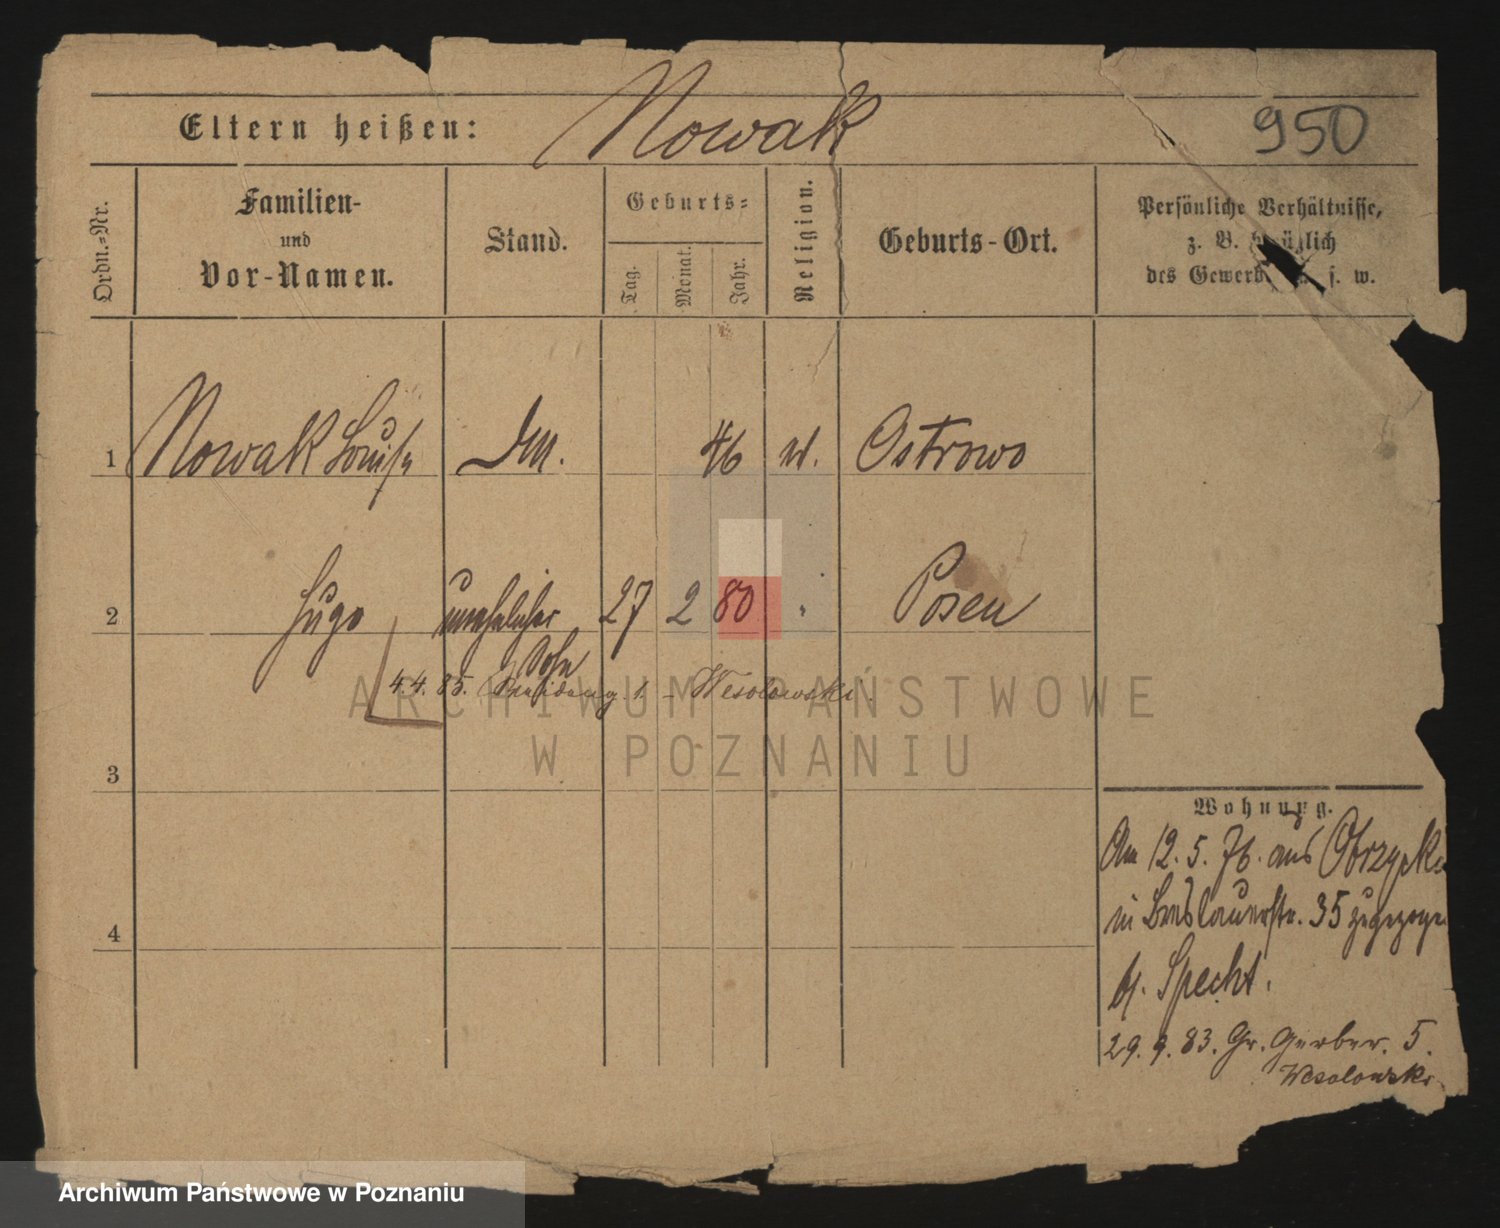 Eltern heißen: Nowak
950
Ordn.=Nr.
Familien-
und
Vor-Namen.
Stand.
Geburts=
Tag.
Monat.
Jahr.
Religion.
Geburts-Ort.
Persönliche Verhältnisse,
z. B. bezüglich
des Gewerbes u. s. w.
1 Nowak Louise 46 Ostrowo
2 Hugo unehelicher 27 2 80 " Posen
Sohn
4.4.85. 1. - Wesolowski.
ARCHIWUM PAŃSTWOWE
W POZNANIU
3
4
Wohnung.
Am 12. 5. 76. aus
in Breslauerstr. 35
b. Specht.
29. 9. 83. Gr. Gerber. 5.
Wesolowski
Archiwum Państwowe w Poznaniu